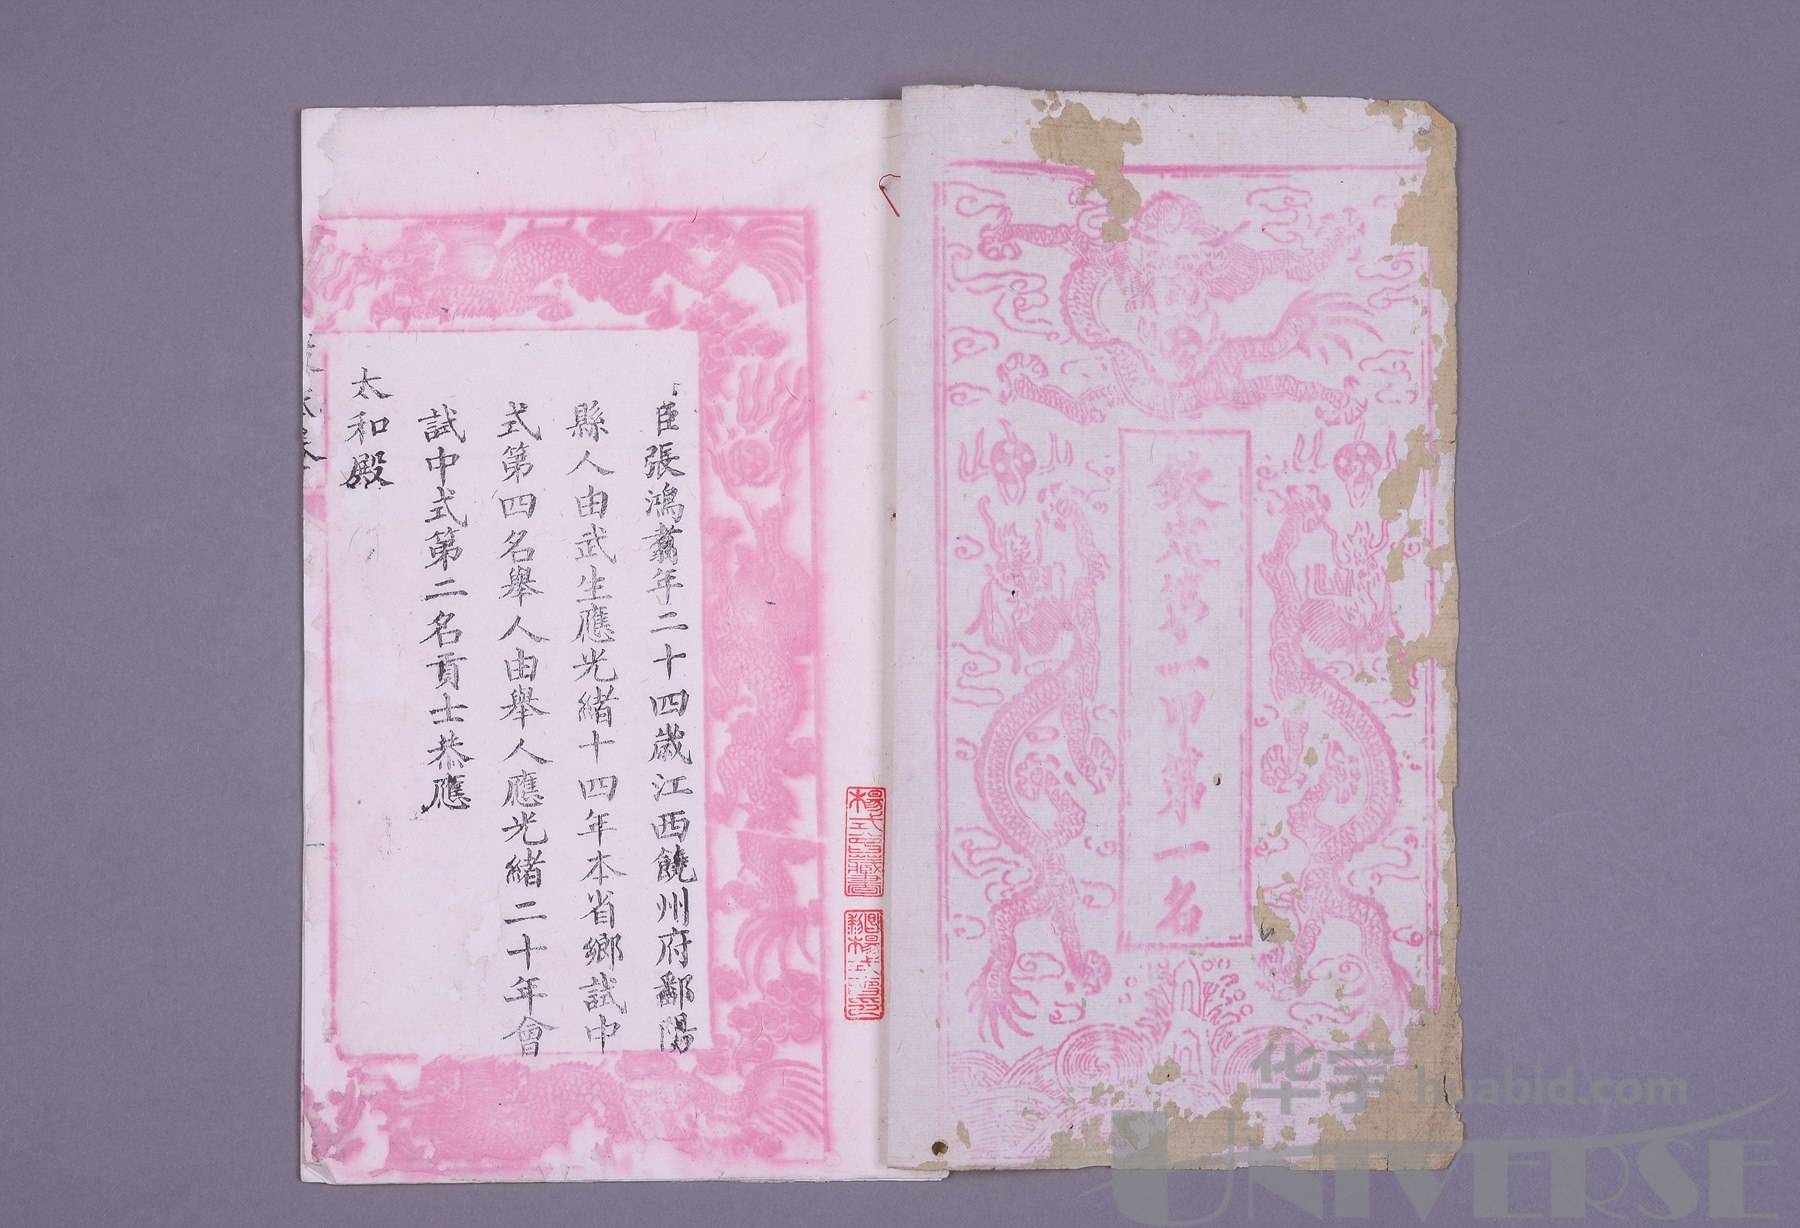 欽定第一甲第一名
臣張鴻翥年二十四歲江西饒州府鄱陽
縣人由武生應光緒十四年本省鄉試中
式第四名舉人由舉人應光緒二十年會
試中式第二名貢士恭應
太和殿
楊式谷藏書
华宇 huabid.com
UNIVERSE